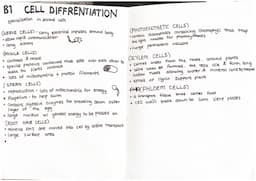 B1 CELL DIFFRENTIATION
specialisation in animal cells
(NERVE CELLS)
• carry electrical impulses around body
• allow rapid communication
• long axons
(MUSCLE CELLS)
• contract & relax
• special proteins contained that slide over each other to make the fibres contract
• lots of mitochondria & protein filaments
(SPERM CELLS)
• reproduction - lots of mitochondria for energy
• flagellum - to help swim
• contains digestive enzymes for breaking down outer layer of the egg
• large nucleus w/ genetic energy to be passed on
(ROOT HAIR CELLS)
• mineral ions are moved into cell by active transport
• large surface area
(PHOTOSYNTHETIC CELLS)
• contain chloroplasts containing chlorophyll that trap the light needed for photosynthesis
• large permanent vacuole
(XYLEM CELLS)
• carries water from the roots around plants
• hollow tubes allowing water & mineral ions to move
(PHLOEM CELLS)
• a transport tissue that carries food
• cell walls break down to form sieve plates